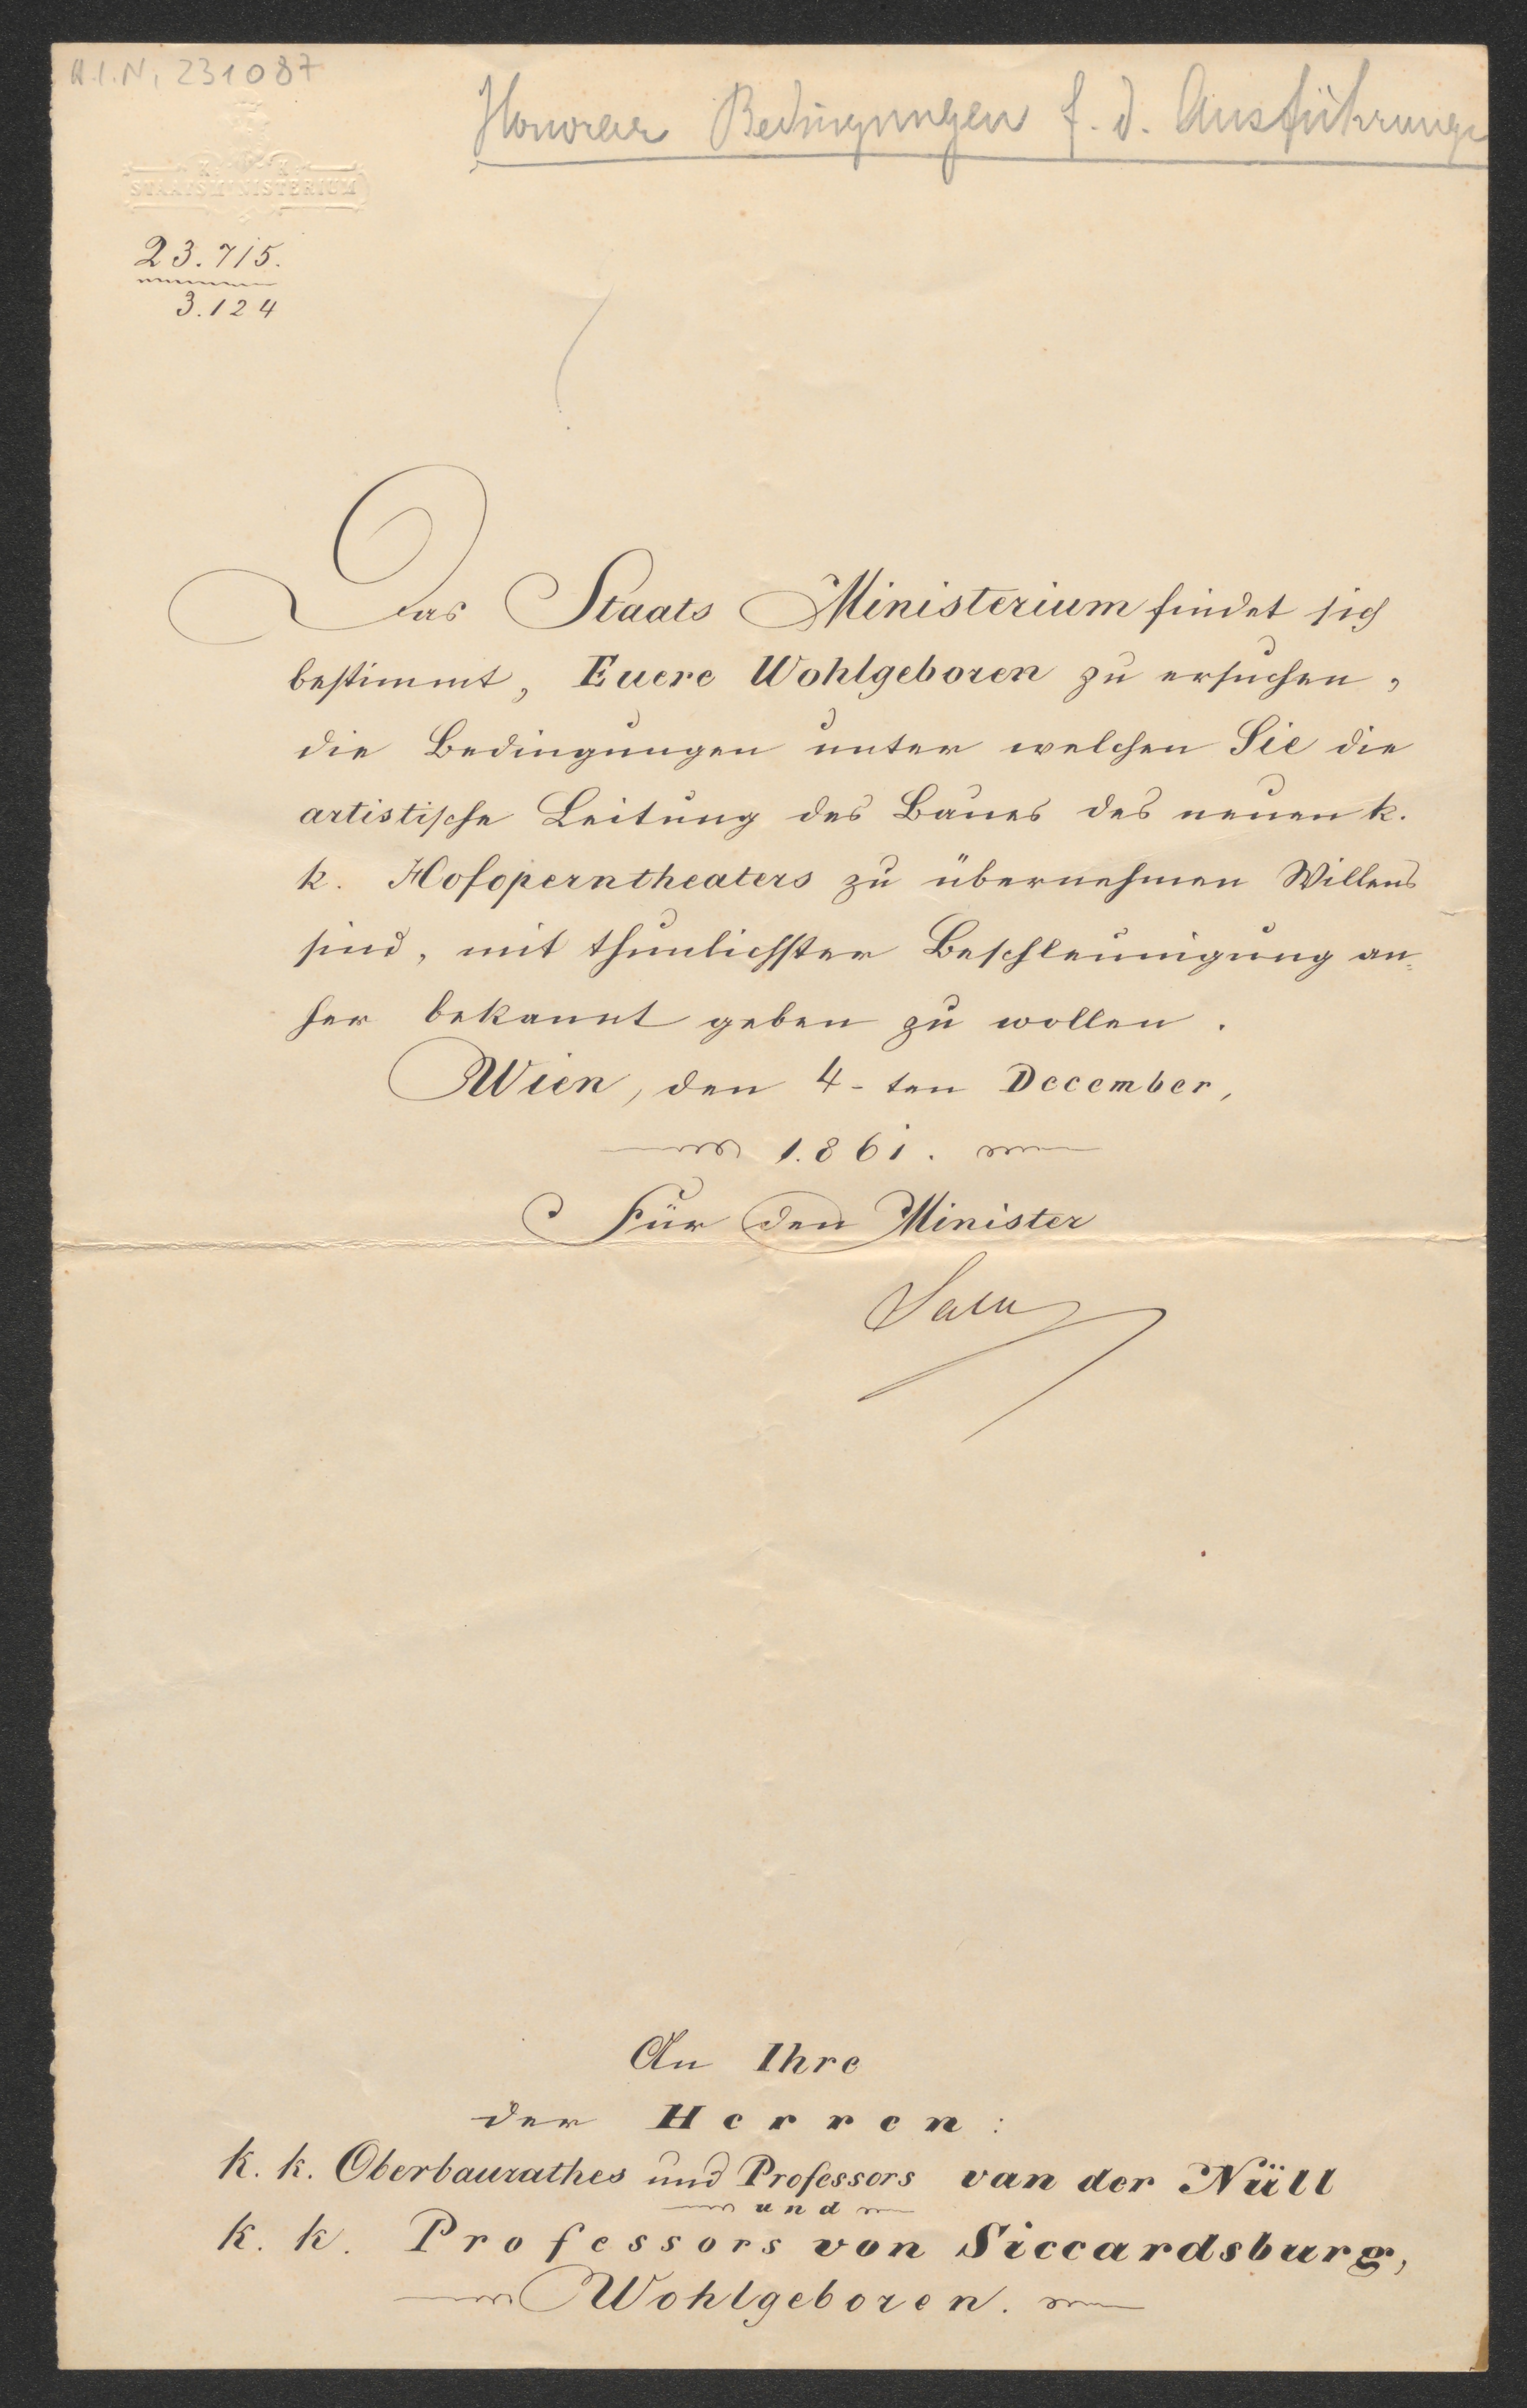 H.I.N. 231087
Honorar Bedingungen f. d. Ausführung
K. K.
STAATSMINISTERIUM
23.715.
3.124
Das Staats Ministerium findet sich
bestimmt, Euere Wohlgeboren zu ersuchen,
die Bedingungen unter welchen Sie die
artistische Leitung des Baues des neuen k.
k. Hofoperntheaters zu übernehmen Willens
sind, mit thunlichster Beschleunigung an=
her bekannt geben zu wollen.
Wien, den 4-ten December,
1861.
Für den Minister
An Ihre
der Herren:
k. k. Oberbaurathes und Professors van der Nüll
und
k. k. Professors von Siccardsburg,
Wohlgeboren.